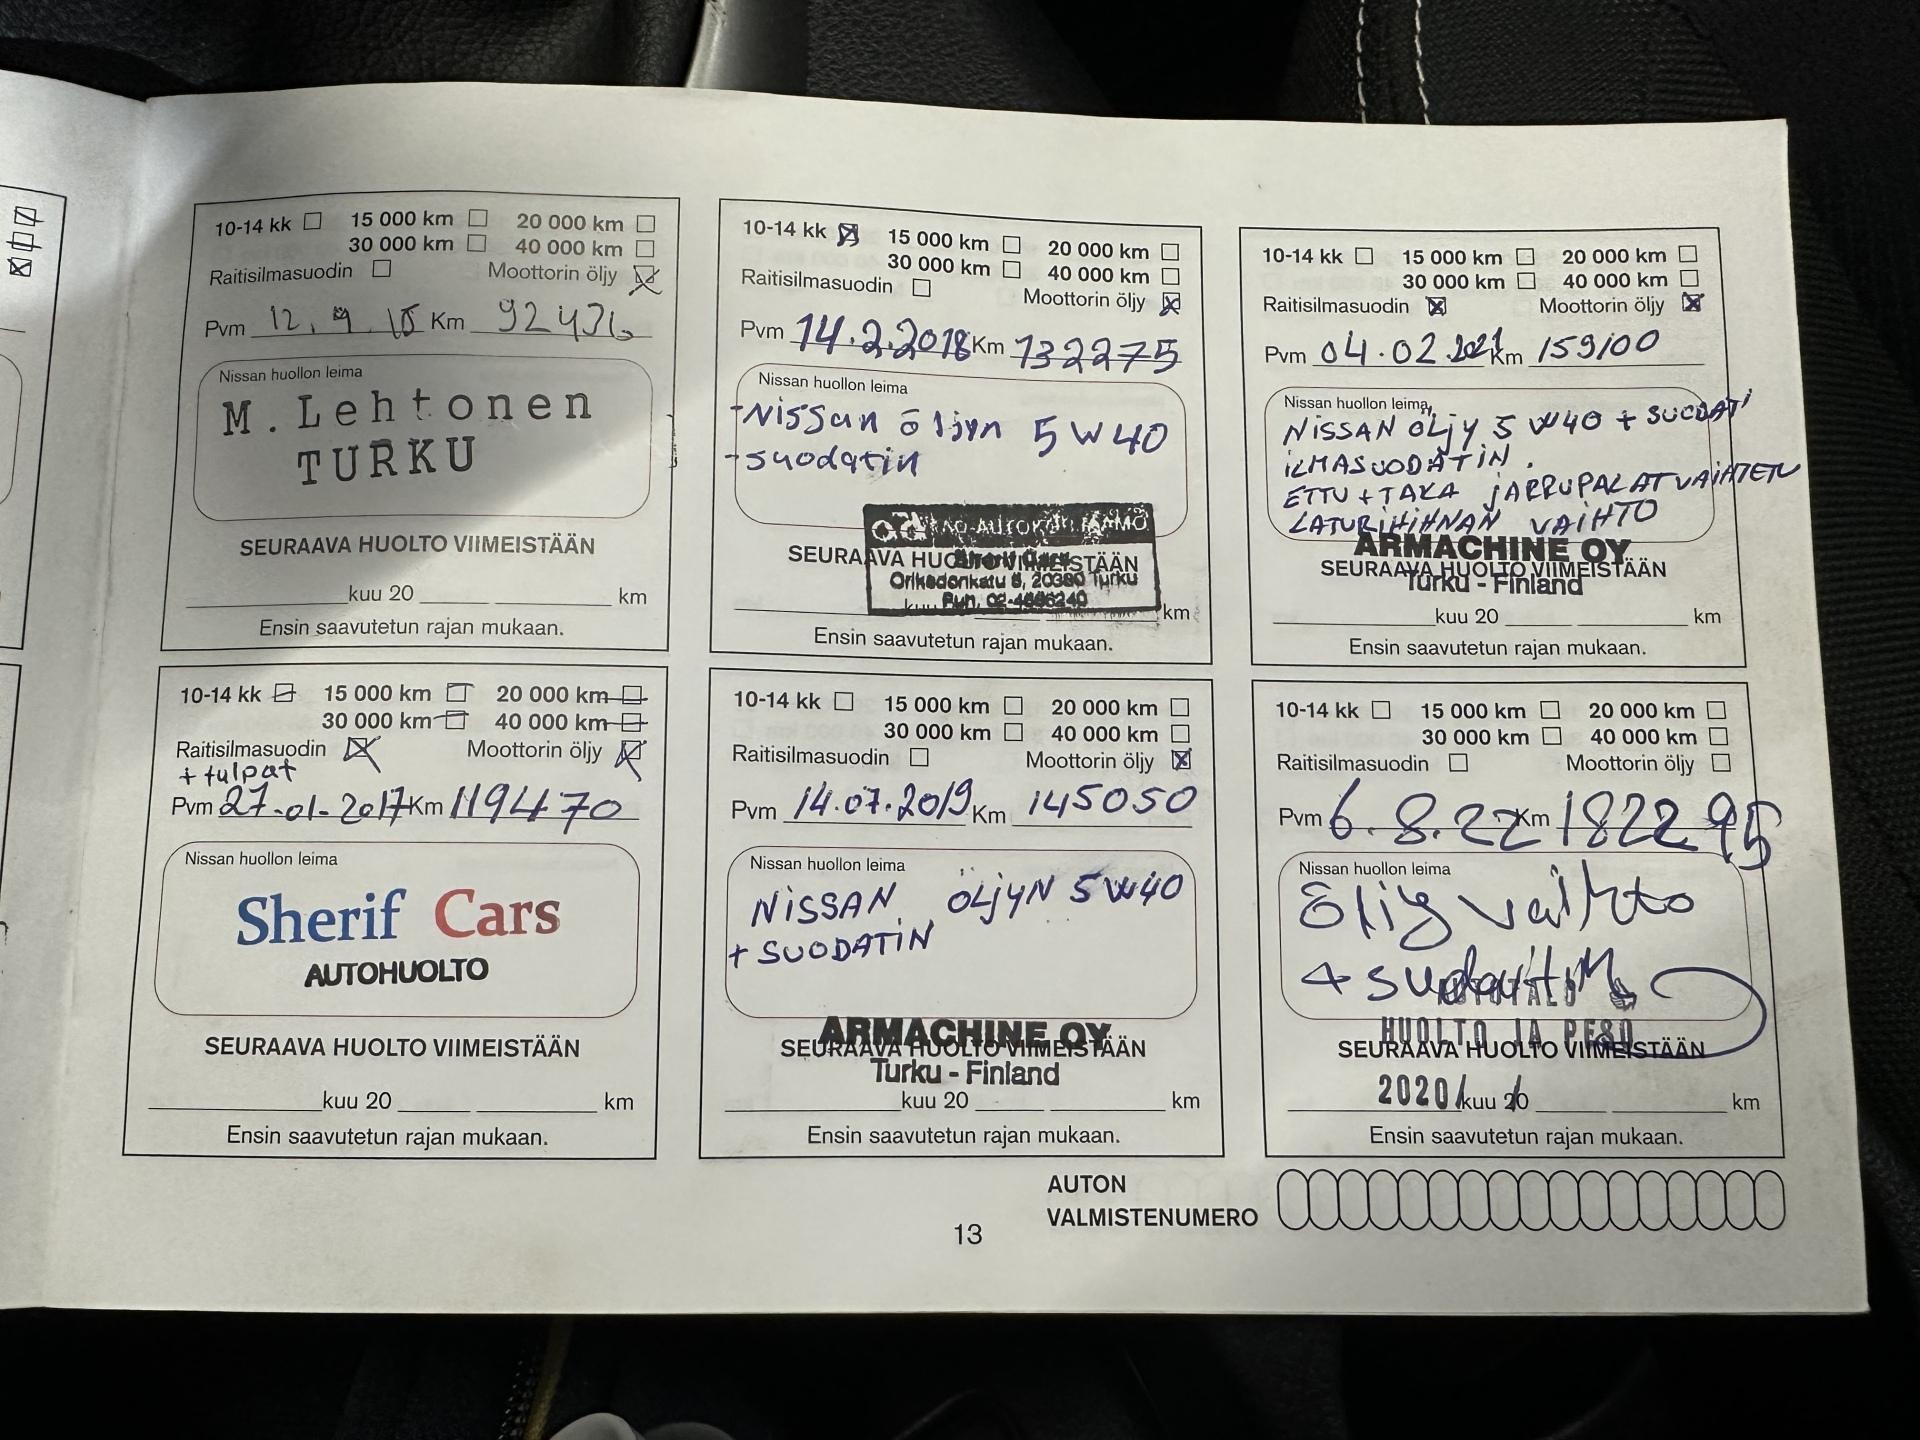 10-14 kk 15 000 km 20 000 km
30 000 km 40 000 km
Raitisilmasuodin Moottorin öljy
Pvm 12. 9 15 Km 92436
Nissan huollon leima
M. Lehtonen
TURKU
SEURAAVA HUOLTO VIIMEISTÄÄN
kuu 20 km
Ensin saavutetun rajan mukaan.
10-14 kk 15 000 km 20 000 km
30 000 km 40 000 km
Raitisilmasuodin Moottorin öljy
Pvm 14.2.2018 Km 132275
Nissan huollon leima
-Nissan öljyn 5W40
-suodatin
SEURAAVA HUOLTO VIIMEISTÄÄN
Orikedonkatu 8, 20380 Turku
kuu
Puh. 02-4696240
km
Ensin saavutetun rajan mukaan.
10-14 kk 15 000 km 20 000 km
30 000 km 40 000 km
Raitisilmasuodin Moottorin öljy
Pvm 04.02.2021 Km 159100
Nissan huollon leima
NISSAN ÖLJY 5W40 + SUODATI
ILMASUODATIN.
ETTU + TAKA JARRUPALAT VAIHTETU
LATURIHIHNAN VAIHTO
ARMACHINE OY
SEURAAVA HUOLTO VIIMEISTÄÄN
Turku - Finland
kuu 20 km
Ensin saavutetun rajan mukaan.
10-14 kk 15 000 km 20 000 km
30 000 km 40 000 km
Raitisilmasuodin Moottorin öljy
+ tulpat
Pvm 27-01-2017 Km 119470
Nissan huollon leima
Sherif Cars
AUTOHUOLTO
SEURAAVA HUOLTO VIIMEISTÄÄN
kuu 20 km
Ensin saavutetun rajan mukaan.
10-14 kk 15 000 km 20 000 km
30 000 km 40 000 km
Raitisilmasuodin Moottorin öljy
Pvm 14.07.2019 Km 145050
Nissan huollon leima
NISSAN ÖLJYN 5W40
+ SUODATIN
ARMACHINE OY
SEURAAVA HUOLTO VIIMEISTÄÄN
Turku - Finland
kuu 20 km
Ensin saavutetun rajan mukaan.
10-14 kk 15 000 km 20 000 km
30 000 km 40 000 km
Raitisilmasuodin Moottorin öljy
Pvm 6.8.22 Km 182295
Nissan huollon leima
Öljy vaihto
+ suodatin
AUTOTALO
HUOLTO JA PESO
SEURAAVA HUOLTO VIIMEISTÄÄN
2020/ kuu 20 km
Ensin saavutetun rajan mukaan.
AUTON
VALMISTENUMERO
13